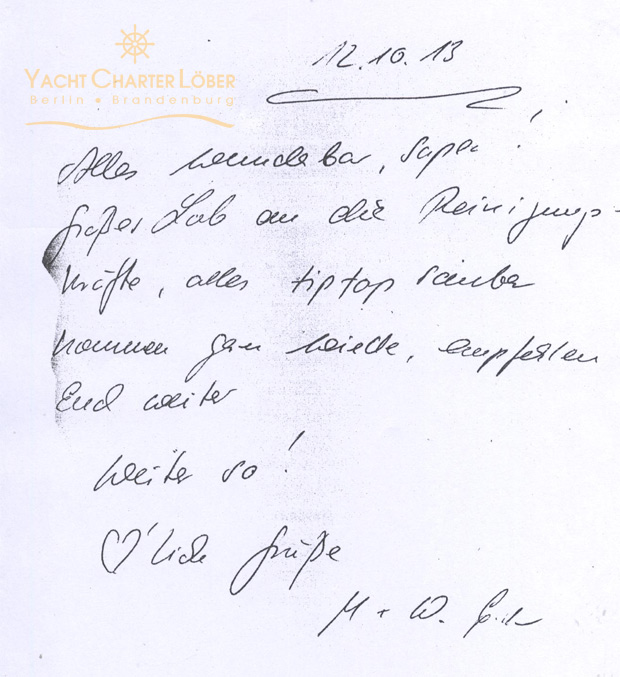 YACHT CHARTER LÖBER
Berlin • Brandenburg
12.10.13
Alles wunderbar, super!
Großes Lob an die Reinigungs-
kräfte, alles tiptop sauber
kommen gern wieder, empfehlen
Euch weiter
Weiter so!
♡'lich Grüße
M + W.